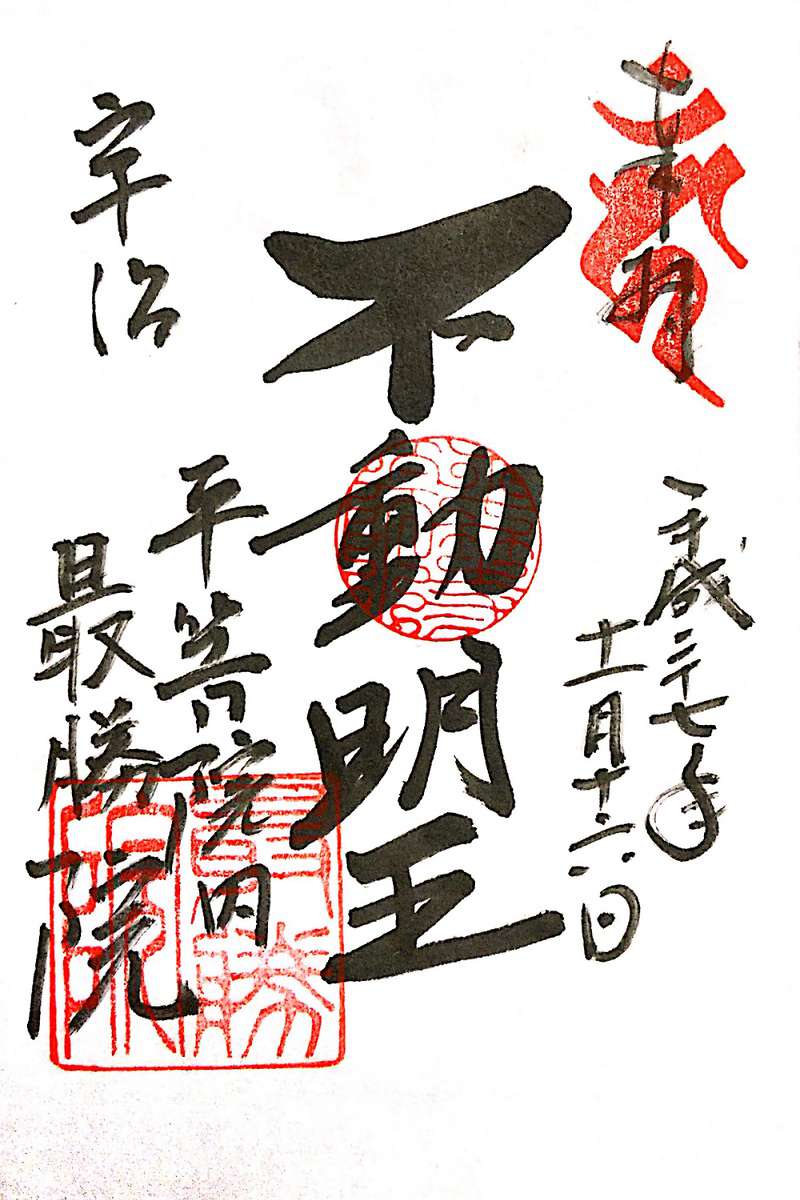 奉拝
平成二十七年
十一月十六日
不動明王
宇治
平等院内
最勝院
最勝院